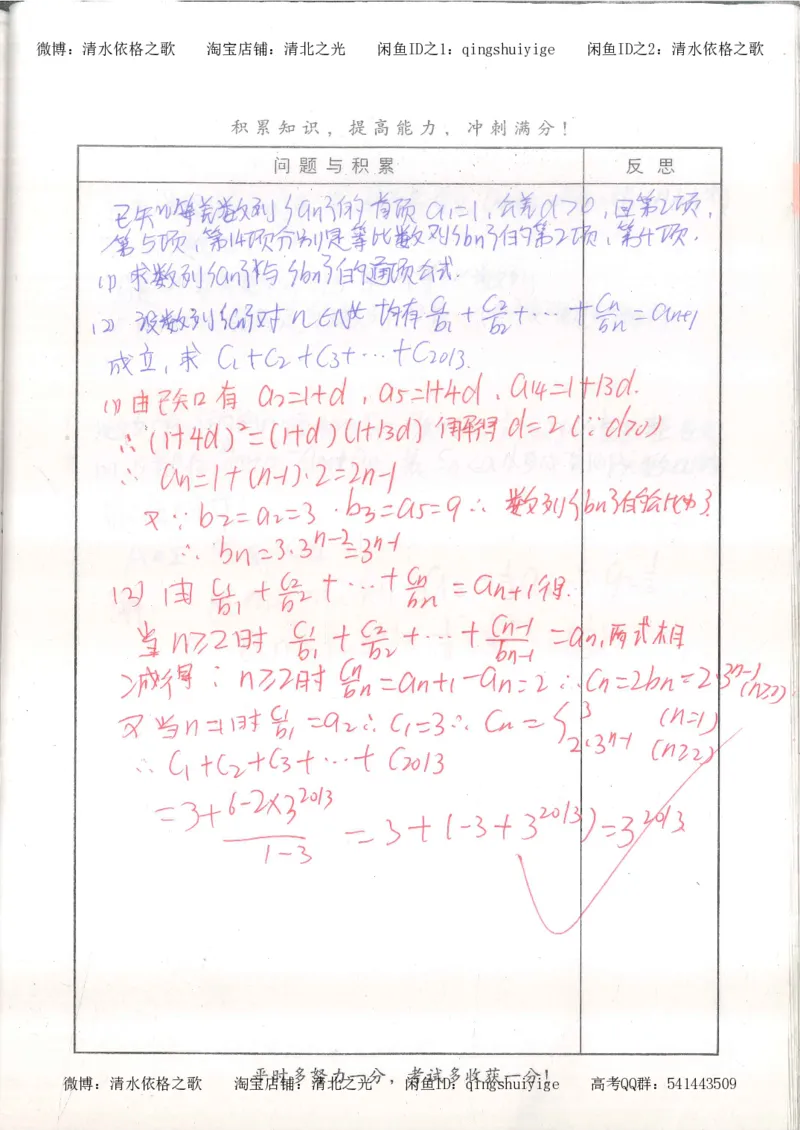 微博：清水依格之歌 淘宝店铺：清北之光 闲鱼ID之1：qingshuiyige 闲鱼ID之2：清水依格之歌
积累知识，提高能力，冲刺满分！
问题与积累 反思
已知等差数列{an}的首项a₁=1,公差d>0,且第2项,
第5项,第14项分别是等比数列{bn}的第2项,第4项.
(1) 求数列{an}与{bn}的通项公式.
(2) 设数列{cn}对n∈N* 均有 c₁/b₁ + c₂/b₂ + … + cn/bn = an+1
成立,求 C₁+C₂+C₃+…+C2013.
(1) 由已知有 a₂=1+d, a₅=1+4d, a14=1+13d.
∴(1+4d)²=(1+d)(1+13d) 解得d=2(∵d>0)
∴ an=1+(n-1)·2=2n-1
又∵b₂=a₂=3 . b₃=a₅=9 ∴ 数列{bn}的公比为3
∴ bn=3·3ⁿ⁻²=3ⁿ⁻¹
(2) 由 c₁/b₁ + c₂/b₂ + … + cn/bn = an+1得.
当n≥2时 c₁/b₁ + c₂/b₂ + … + cn-1/bn-1 = an,两式相
减得: n≥2时 cn/bn = an+1-an=2 ∴Cn=2bn=2·3ⁿ⁻¹(n≥2)
又当n=1时 c₁/b₁ =a₂ ∴ C₁=3 ∴ Cn = { 3 (n=1)
2·3ⁿ⁻¹ (n≥2)
∴ C₁+C₂+C₃+…+C2013
=3+ (6-2×3²⁰¹³)/(1-3) = 3+(-3+3²⁰¹³)=3²⁰¹³
平时多努力一分，考试多收获一分！
微博：清水依格之歌 淘宝店铺：清北之光 闲鱼ID：qingshuiyige 高考QQ群：541443509